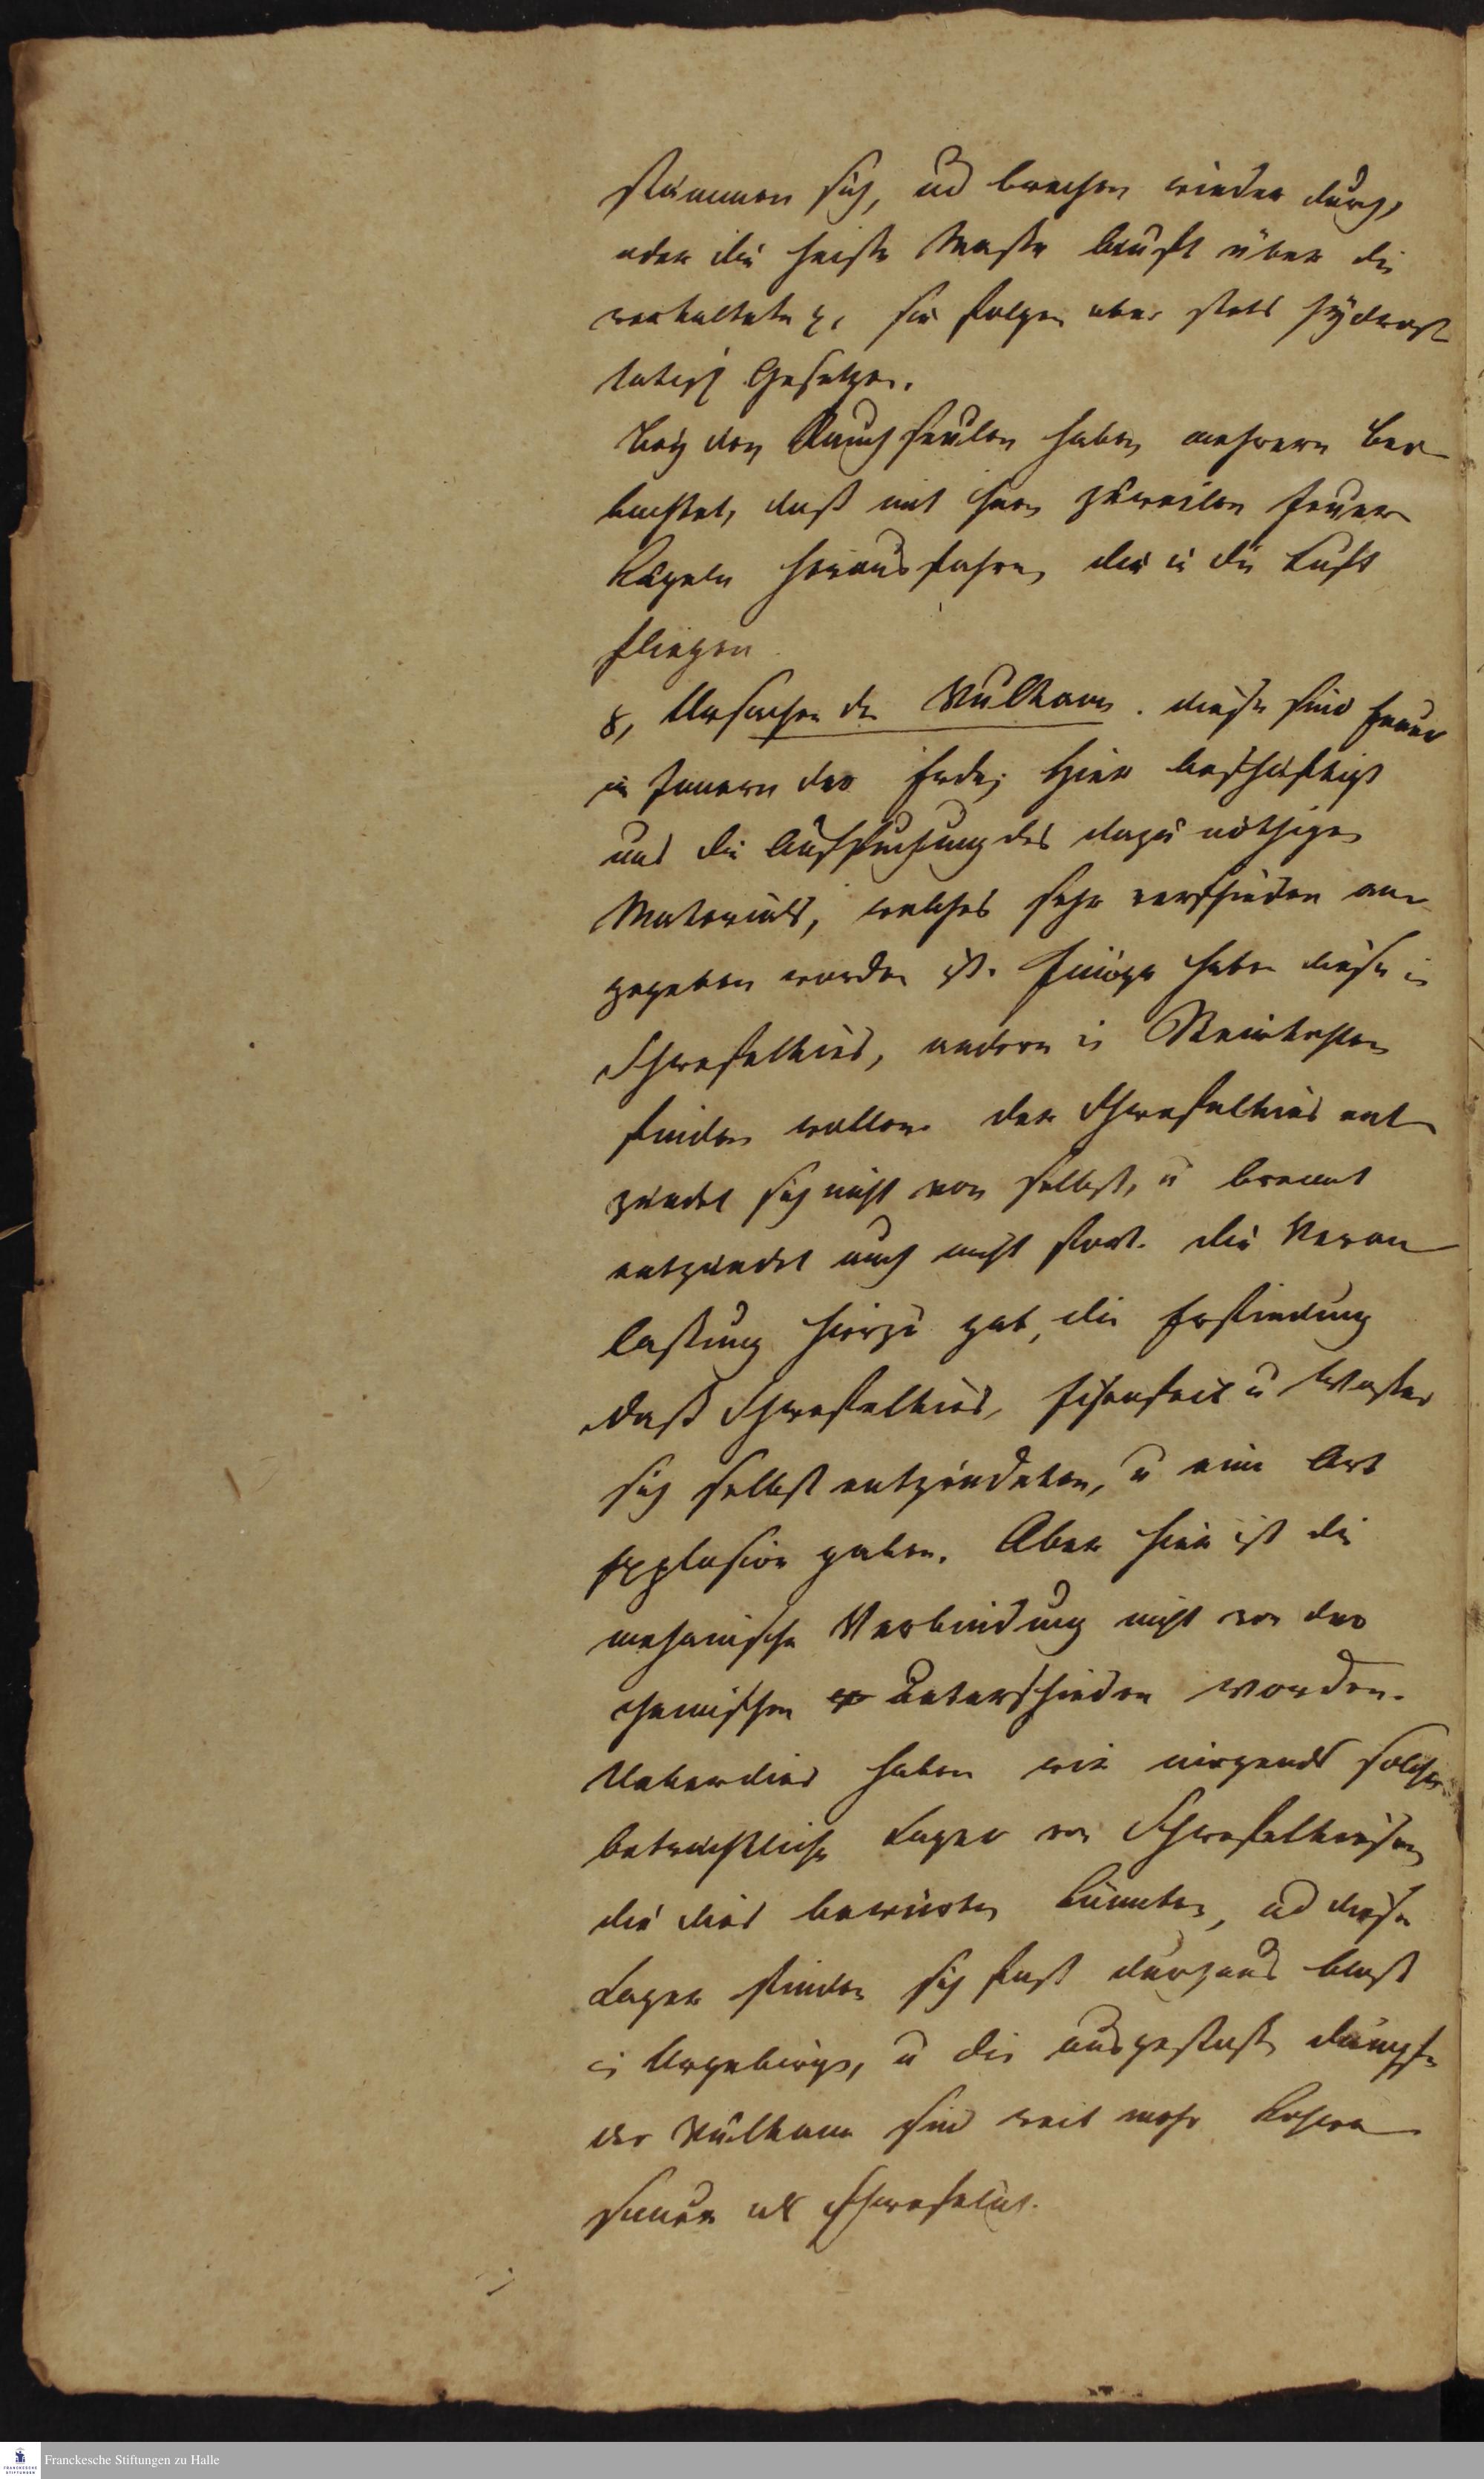 stämmen sich, und brechen wieder durch,
oder die heiße Masse läuft über die
verkaltete p. sie folgen aber stets hydros
tatisch Gesetzen.
Bey den Rauchseulen haben mehrere beo
bachtet, daß mit ihnen zuweilen Feuer
Kugeln herausfahren, die in die Luft
fliegen
8, Ursachen der Vulkane. diese sind Feuer
im Innern der Erde; hier beschäftigt
uns die Aufsuchung des dazu nöthigen
Materials, welches sehr verschieden an
gegeben worden ist. Einige haben diese in
Schwefelkies, andere in Steinkohlen
finden wollen. der Schwefelkies ent
zündet sich nicht von selbst, u brennt
entzündet auch nicht fort. die Veran
lassung hierzu gab, die Erfindung
daß Schwefelkies, Eisenfeil u Wasser
sich selbst entzündeten, u eine Art
Explosion gaben. Aber hier ist die
mechanische Verbindung nicht von der
chemischen unterschieden worden.
Ueberdies haben wir nirgends solche
beträchtliche Lager von Schwefelkiesen
die dies bewirken könnten, und diese
Lager finden sich fast durchaus blos
in Urgebirge, u die ausgestoßne Dämpfe
der Vulkane sind weit mehr Kohlen
sauer als schweflicht.
Franckesche Stiftungen zu Halle